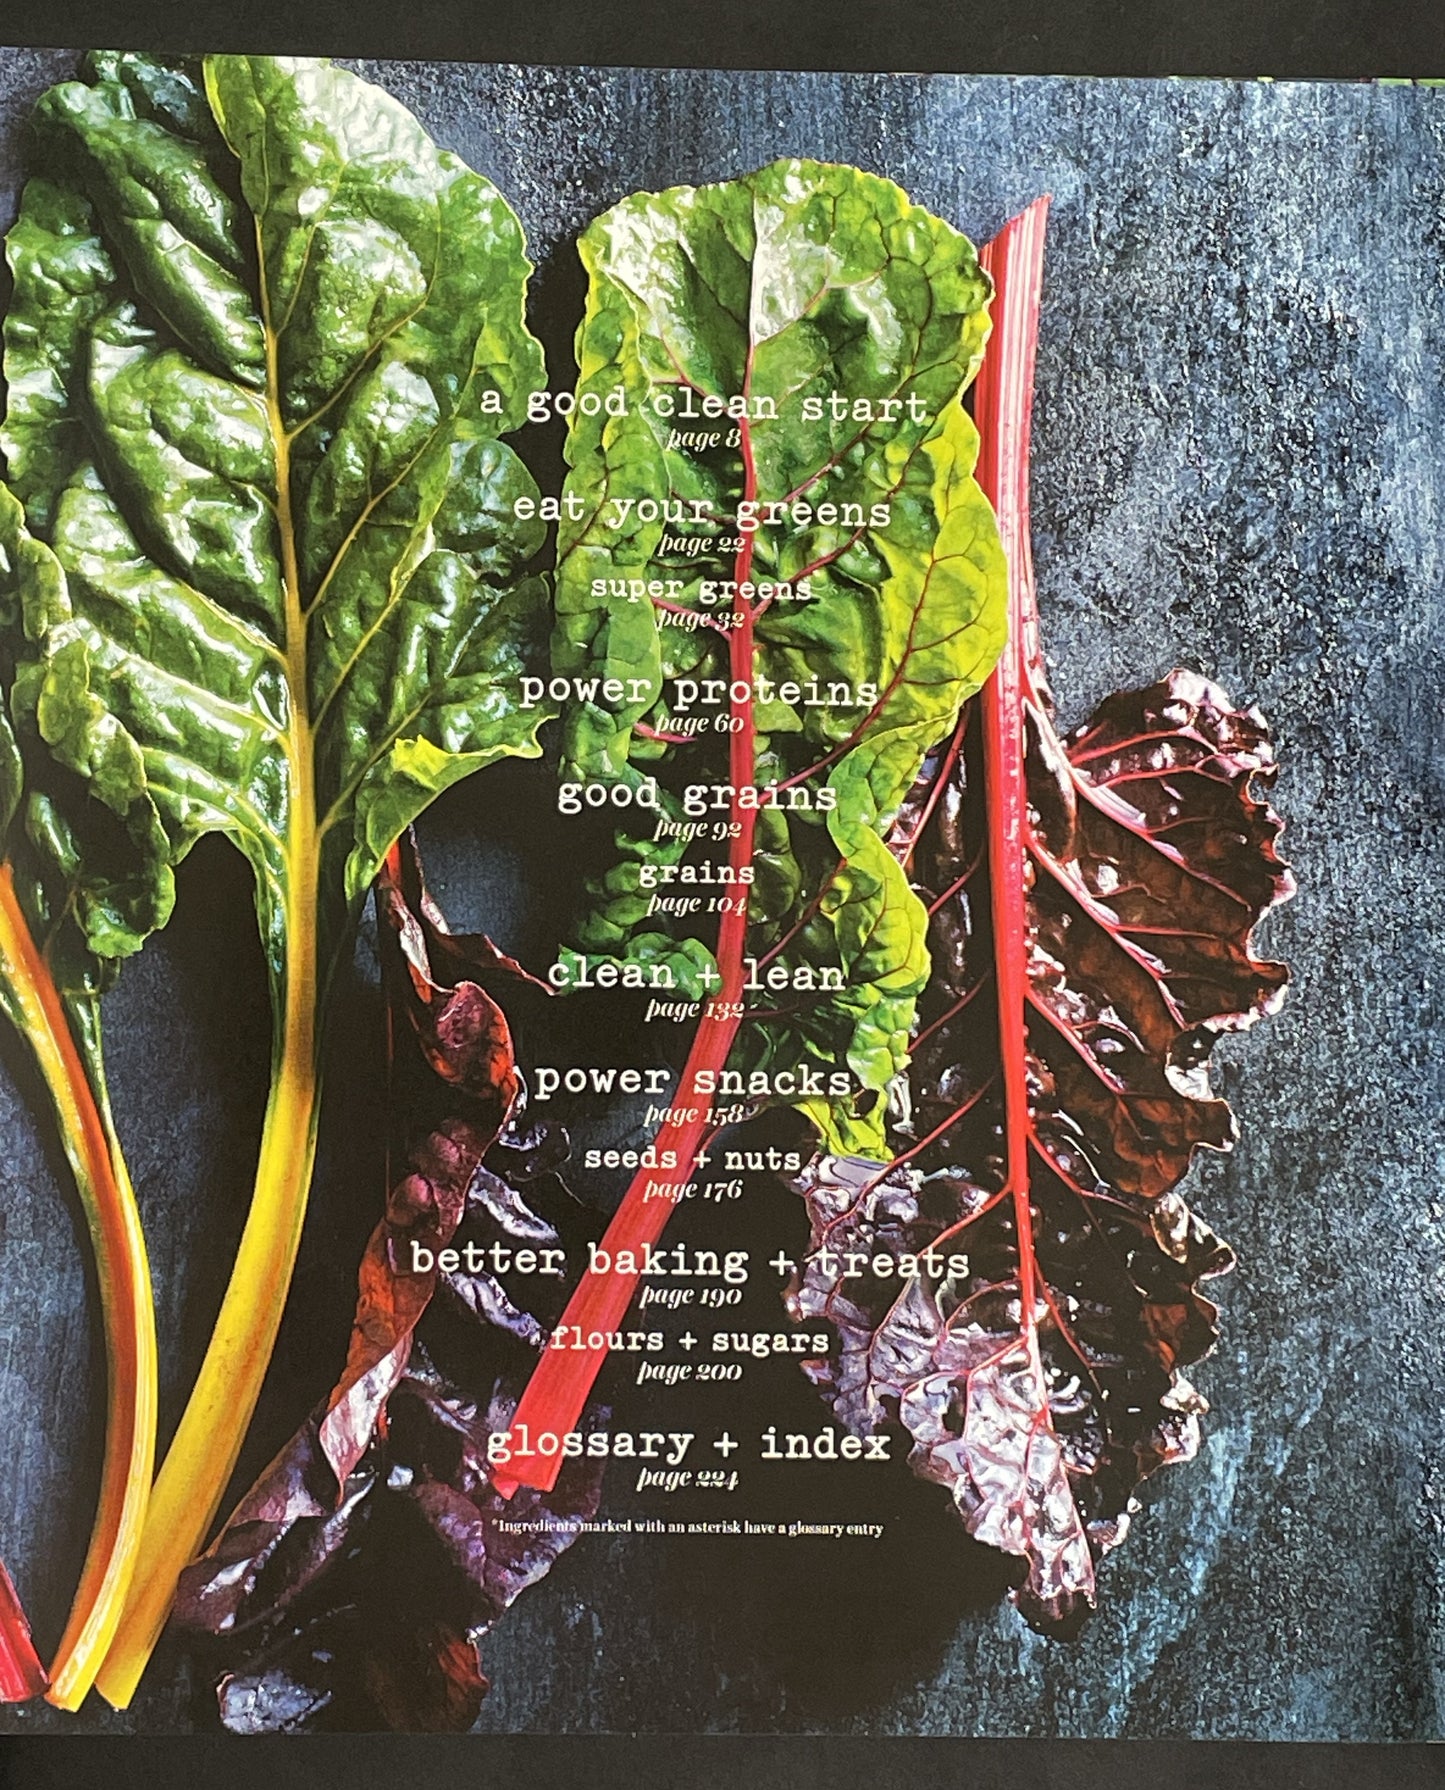 a good clean start
page 8
eat your greens
page 22
super greens
page 32
power proteins
page 60
good grains
page 92
grains
page 104
clean + lean
page 132
power snacks
page 158
seeds + nuts
page 176
better baking + treats
page 190
flours + sugars
page 200
glossary + index
page 224
*Ingredients marked with an asterisk have a glossary entry